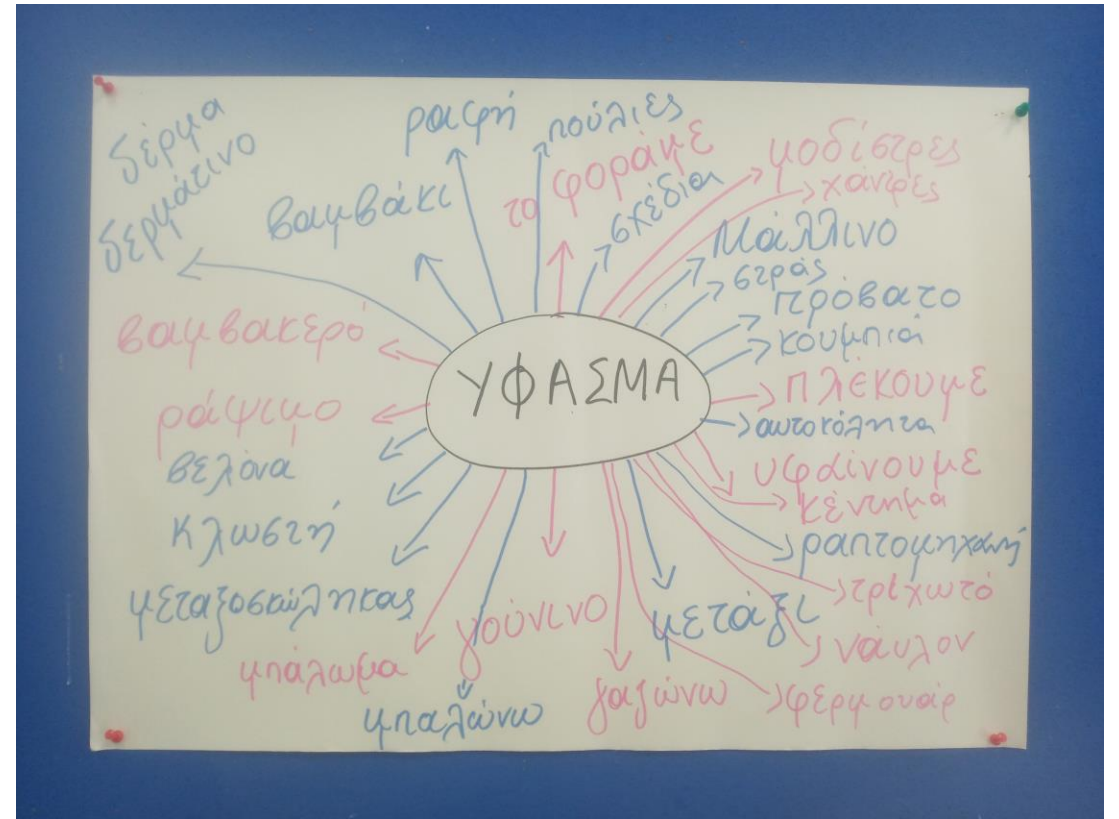 δέρμα
δερμάτινο
βαμβάκι
ραφή
πούλιες
το φοράμε
σχέδια
μοδίστρες
χάντρες
Μάλλινο
στράς
πρόβατο
κουμπιά
πλέκουμε
αυτοκόλητα
υφαίνουμε
κέντημα
ραπτομηχανή
τρίχωτό
νάυλον
φερμουάρ
μετάξι
γαζώνω
γούνινο
μπαλώνω
μπάλωμα
μεταξοσκώληκας
κλωστή
βελόνα
ράψιμο
βαμβακερό
ΥΦΑΣΜΑ